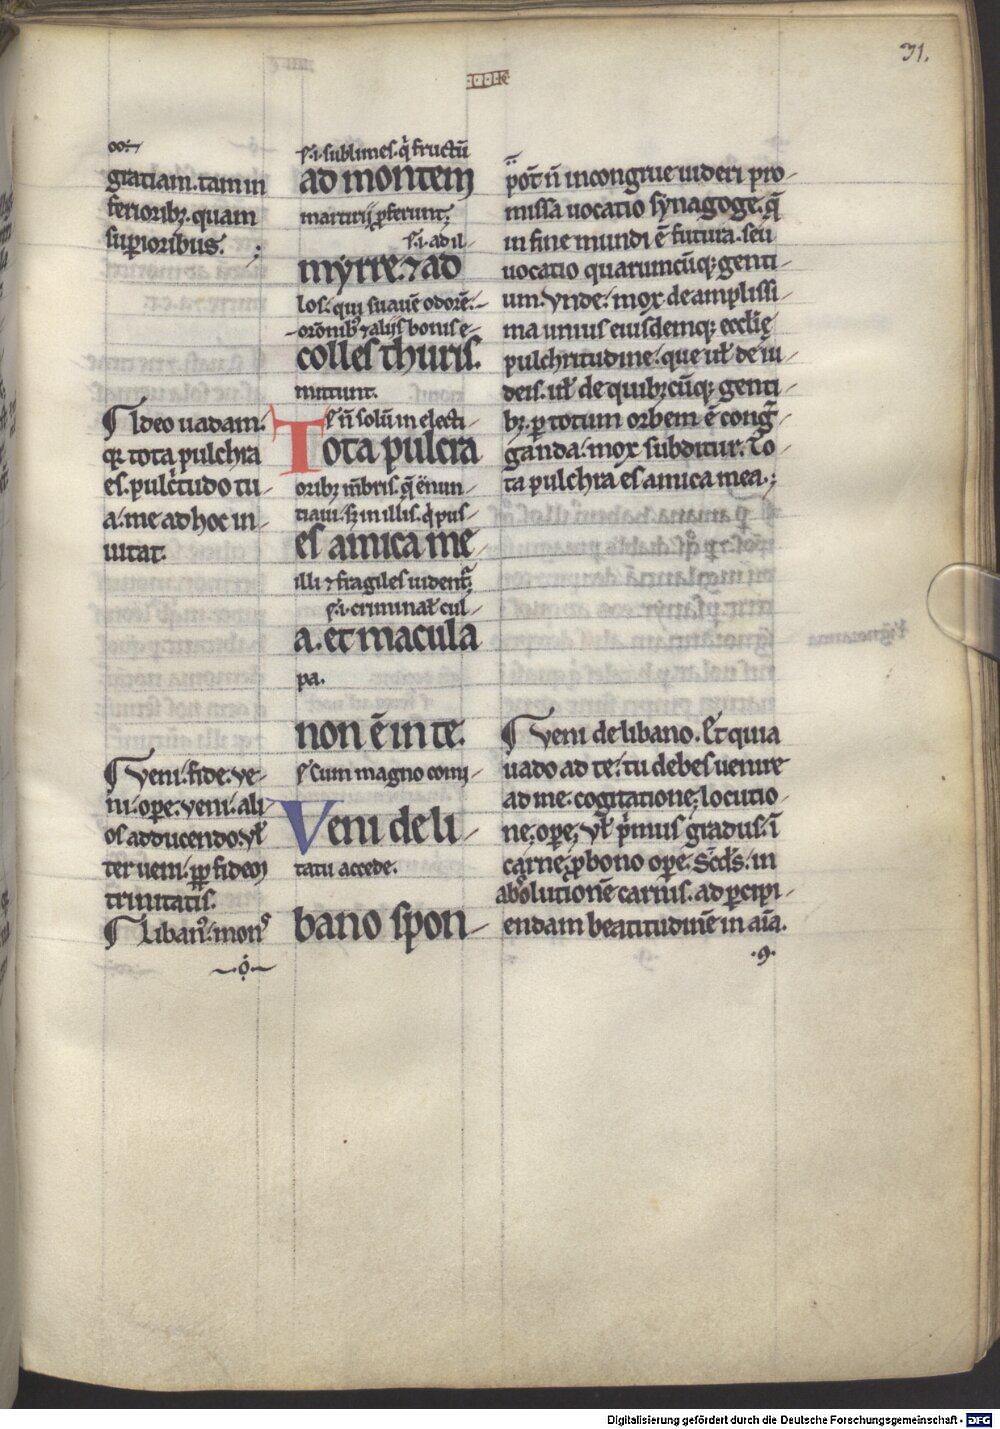 31.
gratiam. tam in
feriorib3. quam
supioribus.
¶ Ideo uadam.
q2 tota pulchra
es. pulc̃tudo tu-
a. me ad hoc in-
uitat.
¶ Veni. fide. ve-
ni. ope. veni. ali-
os adducendo. vł
ter ueni. ꝓp fidem
trinitatis.
¶ Liban᷒. mons
.i. sublimes. q̇ fructū
ad montem
martirij ꝓferunt.
.i. ad il-
myrre. ⁊ ad
los. qui suauē odorē.
orōnib᷒ ⁊ aliis bonis e-
colles thuris.
mittunt.
ñ solū in electi-
Tota pulcra
orib3 m̄bris. q̄ enun-
tiaui. s3 in illis. q̇ pus-
es amica me-
illi ⁊ fragiles uident᷑.
.i. criminał cul-
a. et macula
pa.
non ē in te.
Cum magno comi-
Veni de li-
tatu accede.
bano spon-
pōt ñ incongrue uideri pro-
missa uocatio synagoge. q̄
in fine mundi ē futura. seu
uocatio quarumcūq; genti-
um. Vnde. mox de amplissi-
ma unius eiusdemq; ecclię
pulchritudine. que uł de iu-
deis. uł de quib3cūq; genti-
b3. p totum orbem ē cong̃-
ganda. mox subditur. To-
ta pulchra es amica mea.
¶ Veni de libano. Et quia
uado ad te. tu debes uenire
ad me. cogitatione, locutio-
ne, ope, vł p̄mus gradus. ī
carne, ꝓ bono ope. sc̄ds. in
absolutionē carnis. ad pcipi-
endam beatitudinē in aīa.
.9.
Digitalisierung gefördert durch die Deutsche Forschungsgemeinschaft - DFG